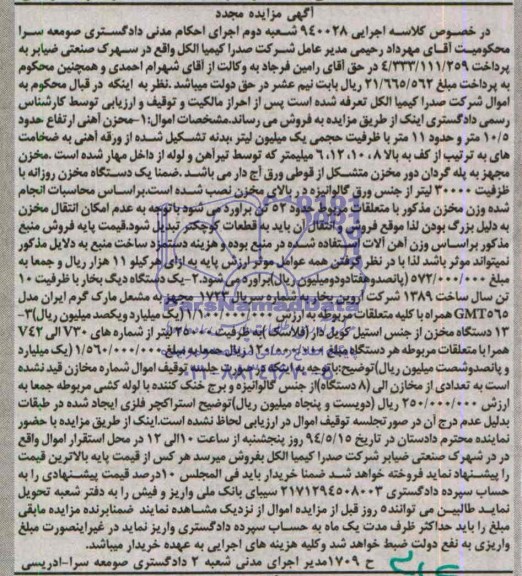 آگهی مزایده مجدد
در خصوص کلاسه اجرایی ۹۴۰۰۲۸ شعبه دوم اجرای احکام مدنی دادگستری صومعه سرا
محکومیت آقای مهرداد رحیمی مدیر عامل شرکت صدرا کیمیا الکل واقع در سهرک صنعتی ضیابر به
پرداخت ۴/۳۳۳/۱۱۱/۲۵۹ در حق آقای رامین فرجاد به وکالت از آقای شهرام احمدی و همچنین محکوم
به پرداخت مبلغ ۲۱/۶۶۵/۵۶۲ ریال بابت نیم عشر در حق دولت میباشد. نظر به اینکه در قبال محکوم به
اموال شرکت صدرا کیمیا الکل تعرفه شده است پس از احراز مالکیت و توقیف و ارزیابی توسط کارشناس
رسمی دادگستری اینک از طریق مزایده به فروش می رساند.مشخصات اموال:۱-محزن آهنی ارتفاع حدود
۱۰/۵ متر و حدود ۱۱ متر با ظرفیت حجمی یک میلیون لیتر ،بدنه تشکیل شده از ورقه آهنی به ضخامت
های به ترتیب از کف به بالا ۸، ۱۰، ۱۲، ۶ میلیمتر که توسط تیرآهن و لوله از داخل مهار شده است .مخزن
مجهز به پله گردان دور مخزن متشکل از قوطی ورق آج دار می باشد .ضمنا یک دستگاه مخزن روزانه با
ظرفیت ۳۰۰۰۰ لیتر از جنس ورق گالوانیزه در بالای مخزن نصب شده است.براساس محاسبات انجام
شده وزن مخزن مذکور با متعلقات مربوطه حدود ۵۲ تن برآورد می شود باتوجه به عدم امکان انتقال مخزن
به دلیل بزرگ بودن لذا موقع فروش و انتقال آن باید به قطعات کوچکتر تبدیل شود.قیمت پایه فروش منبع
مذکور براساس وزن آهن آلات استفاده شده در منبع بوده و هزینه دستمزد ساخت منبع به دلایل مذکور
نمیتواند موثر باشد لذا با در نظر گرفتن همه عوامل موثر ارزش پایه به ازای هر کیلو ۱۱ هزار ریال و جمعا به
مبلغ ۵۷۲/۰۰۰/۰۰۰ (پانصدوهفتادودومیلیون ریال)برآورد می شود.۲-یک دستگاه دیگ بخار با ظرفیت ۱۰
تن سال ساخت ۱۳۸۹ شرکت آروین بخار به شماره سریال ۱۷۲۲ مجهز به مشعل مارک گرم ایران مدل
GMT۵۶۵ همراه با کلیه متعلقات مربوطه به ارزش ۱/۱۰۰/۰۰۰/۰۰۰ (یک میلیارد ویکصد میلیون ریال)۳-
۱۳ دستگاه مخزن از جنس استیل کویل دار (فلاسک) به ظرفیت ۲۵۰۰۰ لیتر از شماره های ۷۳۰ الی ۷۴۲
همرا با متعلقات مربوطه هر دستگاه مبلغ ۱۲۰/۰۰۰/۰۰۰ ریال جمعا به مبلغ ۱/۵۶۰/۰۰۰/۰۰۰ (یک میلیارد
و پانصدوشصت میلیون ریال)توضیح:باتوجه به اینکه در صورت جلسه توقیف اموال شماره مخازن قید نشده
است به تعدادی از مخازن الی (۸ دستگاه)از جنس گالوانیزه و برج خنک کننده با لوله کشی مربوطه جمعا به
ارزش ۲۵۰/۰۰۰/۰۰۰ ریال (دویست و پنجاه میلیون ریال)توضیح استراکچر فلزی ایجاد شده در طبقات
بدلیل عدم درج آن در صورتجلسه توقیف اموال در ارزیابی لحاظ نشده است.اینک از طریق مزایده با حضور
نماینده محترم دادستان در تاریخ ۹۴/۵/۱۵ روز پنجشنبه از ساعت ۱۰الی ۱۲ در محل استقرار اموال واقع
در در شهرک صنعتی ضیابر شرکت صدرا کیمیا الکل بفروش میرسد هر کس از قیمت پایه بالاترین قیمت
را پیشنهاد نماید فروخته خواهد شد ضمنا خریدار باید فی المجلس ۱۰درصد قیمت پیشنهادی را به
حساب سپرده دادگستری ۲۱۷۱۲۹۴۵۰۸۰۰۳ سیبای بانک ملی واریز و فیش را به دفتر شعبه تحویل
نماید طالبین می توانند۵ روز قبل از مزایده اموال از نزدیک مشاهده نمایند ضمنابرنده مزایده مابقی
مبلغ را باید حداکثر ظرف مدت یک ماه به حساب سپرده دادگستری واریز نماید در غیراینصورت مبلغ
واریزی به نفع دولت ضبط خواهد شد وکلیه هزینه های اجرایی به عهده خریدار میباشد.
ح ۱۷۰۹مدیر اجرای مدنی شعبه ۲ دادگستری صومعه سرا-ادریسی
ParsNamadData